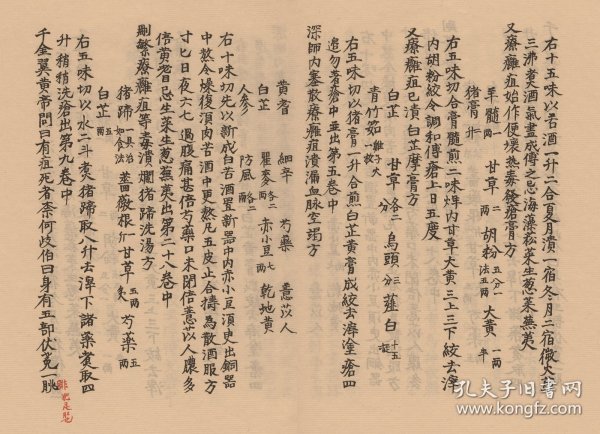 右十五味以苦酒一升二合夏月漬一宿冬月二宿微火煎
三沸煮酒氣盡成傅之忌海藻菘菜生葱菜蕪荑
又療癰疽始作便壞熱毒發瘡膏方
羊髓一兩 甘草二兩 胡粉五分一法五兩 大黃一兩
猪膏二升
右五味切合膏髓煎二味烊内甘草大黃三上三下絞去滓
内胡粉絞令調和傅瘡上日五度
又療癰疽已潰白芷摩膏方
白芷 甘草各二分 烏頭三分 薤白十五挺
青竹茹一雞子大
右五味切以猪膏一升合煎白芷黄膏成絞去滓塗瘡四
邊勿著瘡中並出第五卷中
深師内塞散療癰疽潰漏血脉空竭方
黄耆 細辛 芍藥 薏苡人
白芷 瞿麥各二兩 赤小豆七兩 乾地黄
人參 防風各二兩
右十味切先以新成白苦酒置新器中内赤小豆須臾出銅器
中熬令燥復須内苦酒中更熬凡五皮止合擣為散酒服方
寸匕日夜六七過腹痛甚倍芍藥口未閉倍薏苡人膿多
倍黄耆忌生菜生葱蕪荑出第二十八卷中
刪繁療癰疽等毒潰爛猪蹄洗湯方
猪蹄一具治如食法 薔薇根一斤 甘草五兩炙 芍藥五兩
白芷五兩
右五味切以水二斗煮猪蹄取八升去滓下諸藥煮取四
升稍稍洗瘡出第九卷中
千金翼黄帝問曰有疽死者柰何歧伯曰身有五部伏兔一腓
孔夫子旧书网
www.kongfz.com